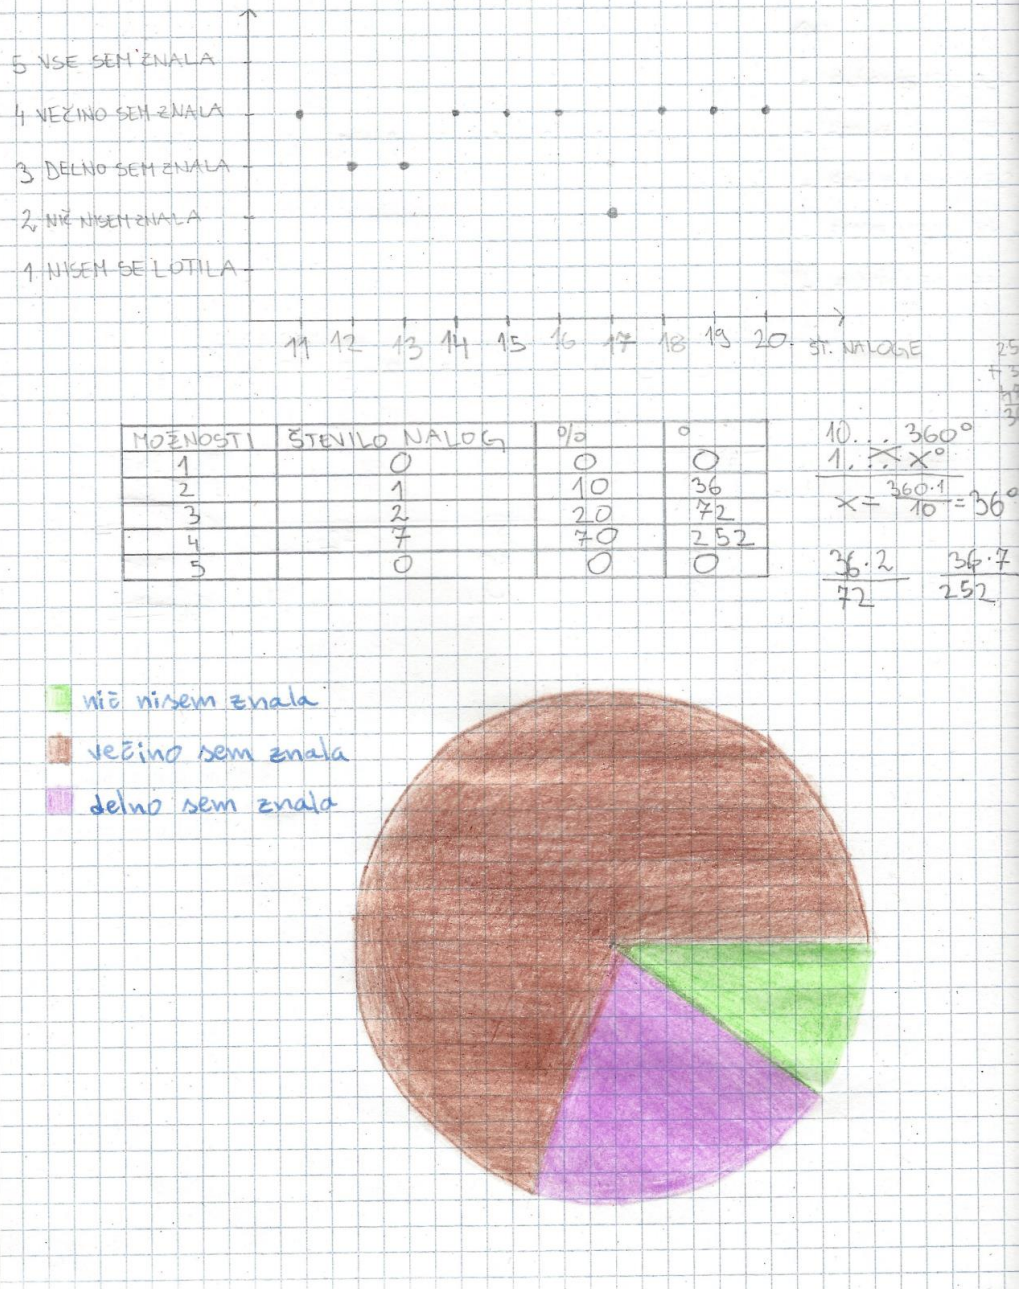 5 VSE SEM ZNALA
4 VEČINO SEM ZNALA
3 DELNO SEM ZNALA
2 NIČ NISEM ZNALA
1 NISEM SE LOTILA
11 12 13 14 15 16 17 18 19 20 ŠT. NALOGE
MOŽNOSTI ŠTEVILO NALOG % °
1 0 0 0
2 1 10 36
3 2 20 72
4 7 70 252
5 0 0 0
10... 360°
1... x°
x = 360·1/10 = 36°
36·2
72
36·7
252
nič nisem znala
večino sem znala
delno sem znala